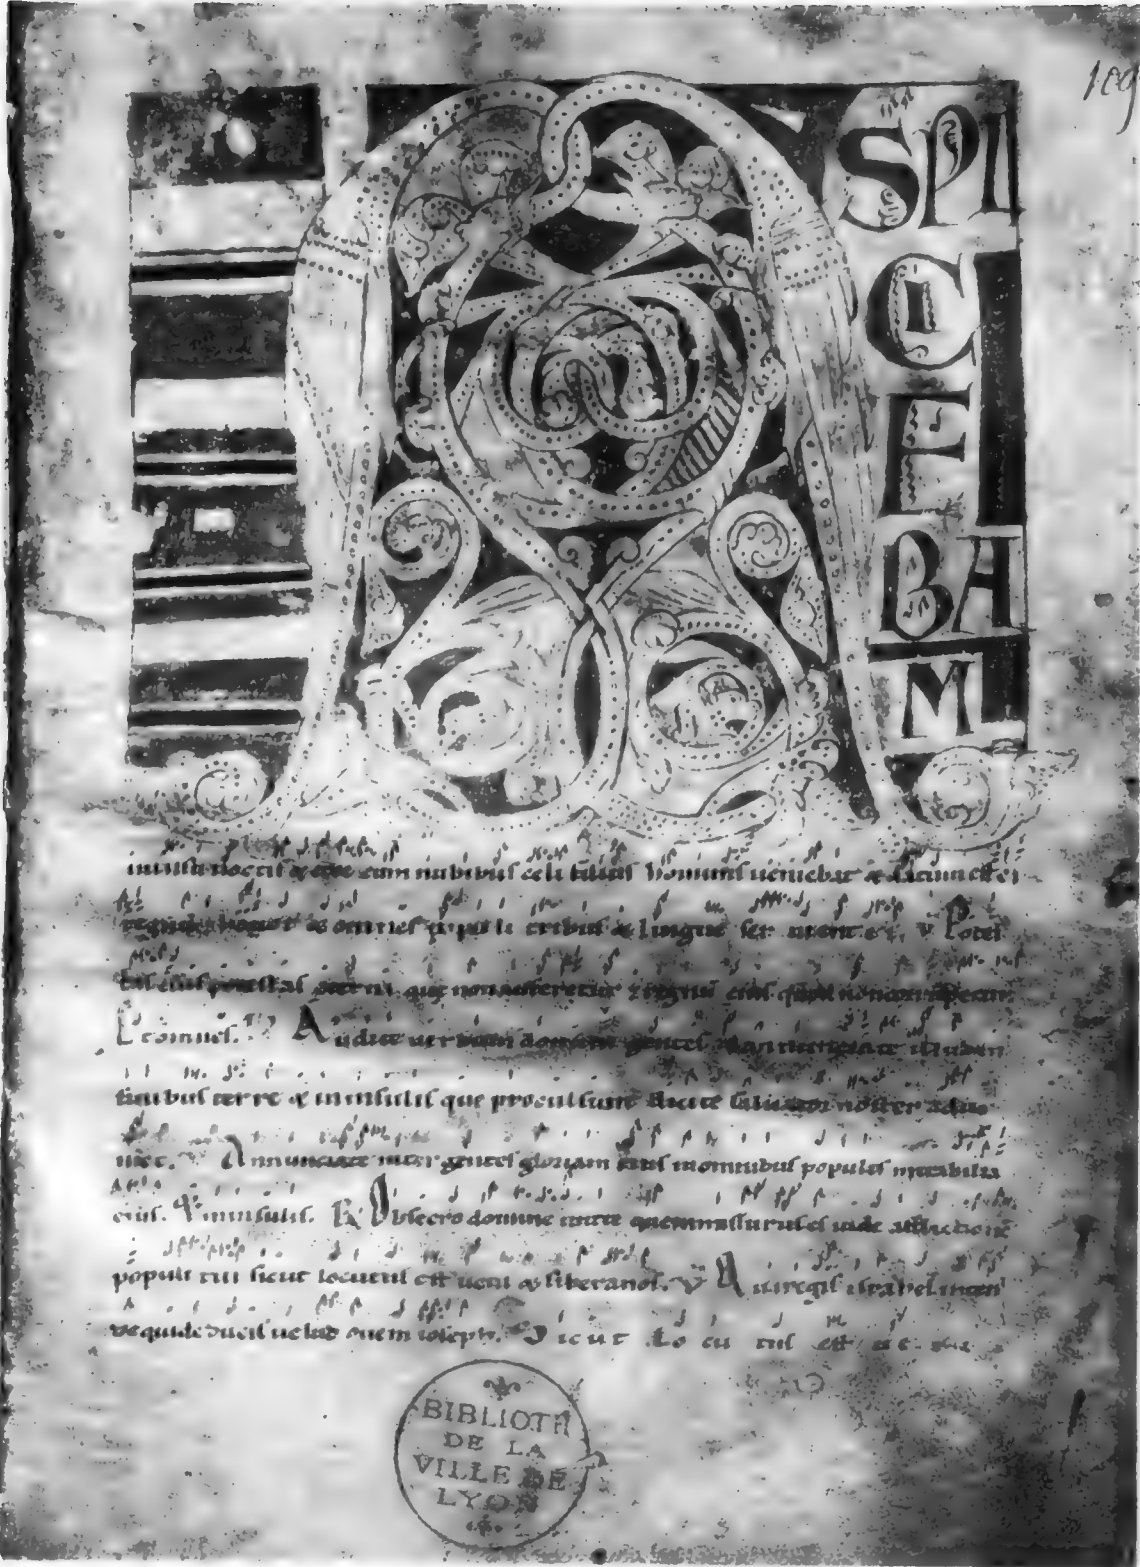 109
A
SPI
CI
E
BA
M
in uisu noctis & ecce cum nubibus celi filius hominis ueniebat & datum est ei
regnum & honor & omnes populi tribus & lingue seruient ei. V Potes
tas eius potestas eterna que non auferetur & regnum eius quod non corrumpetur
Et omnes. Audite uerbum domini gentes & annunciate illud in
finibus terre & in insulis que procul sunt dicite saluator noster adue
niet. V Annunciate inter gentes gloriam eius in omnibus populis mirabilia
eius. Et in insulis. R Obsecro domine mitte quem missurus es uide afflictionē
populi tui sicut locutus est ueni & libera nos. V Qui regis israhel inten
de qui deducis uelud ouem ioseph. Sicut lo cu tus est
BIBLIOTH
DE LA
VILLE DE
LYON